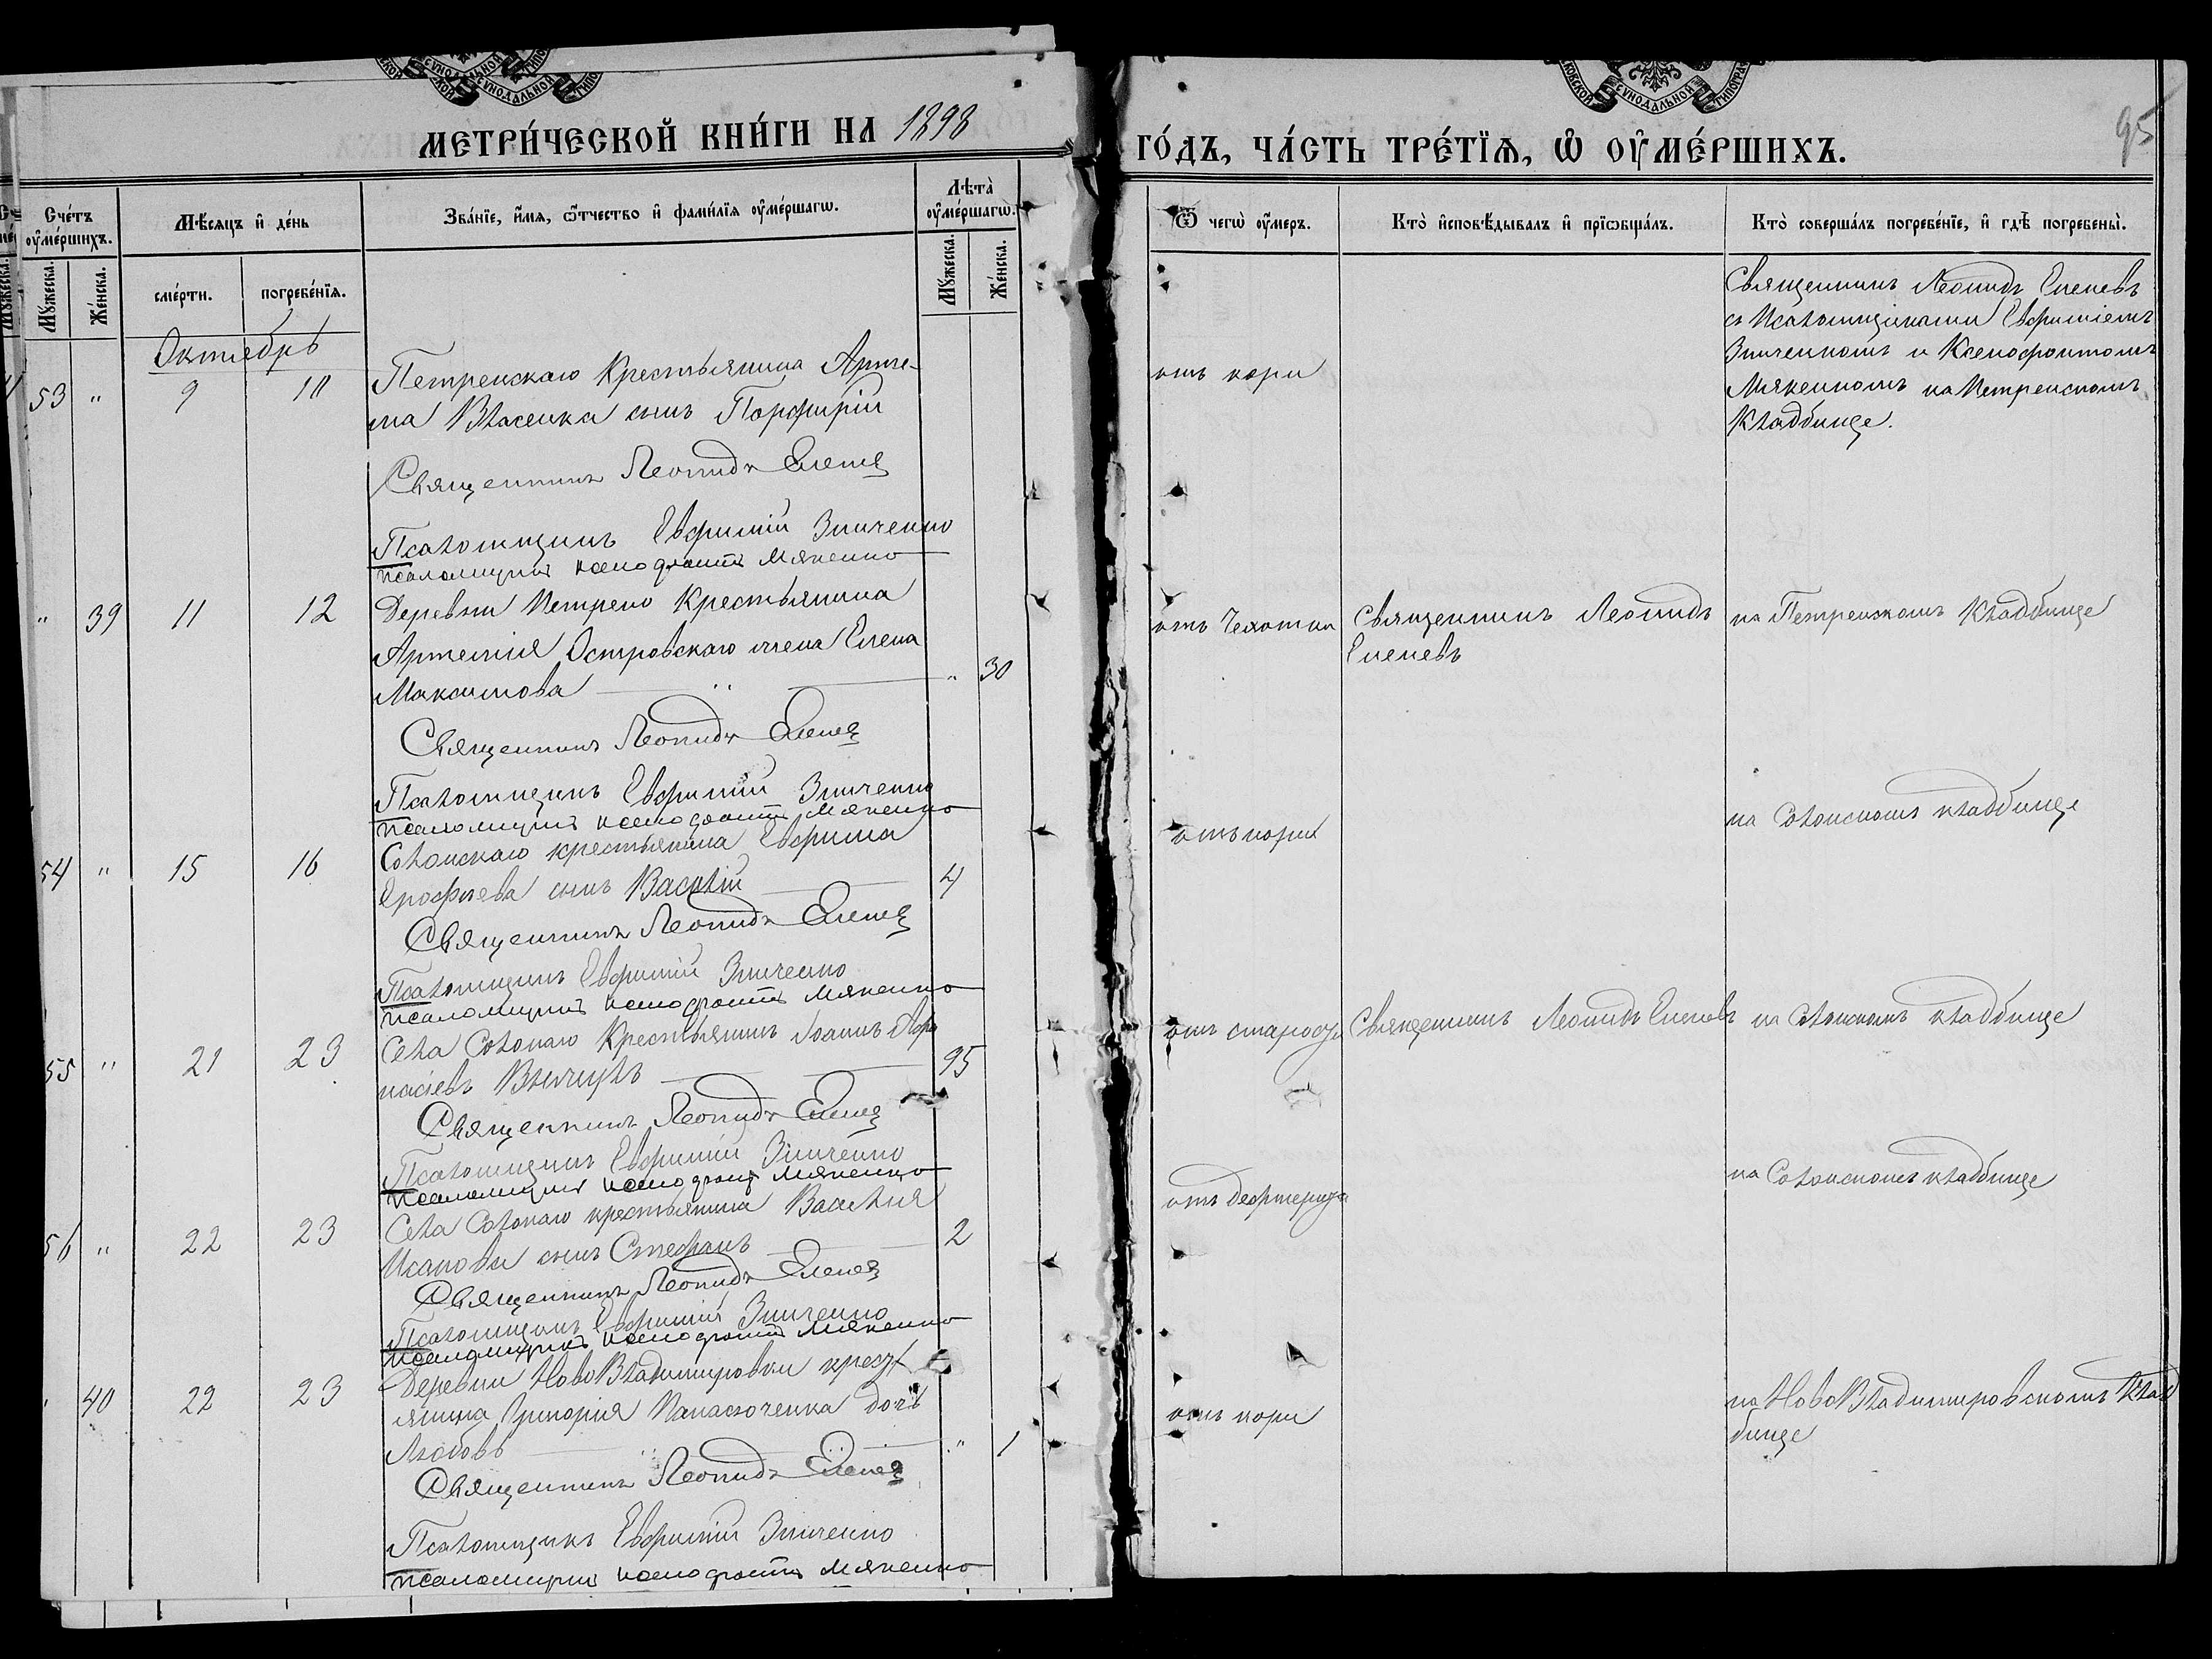 МЕТРИ́ЧЕСКОЙ КНИ́ГИ НА 1898
ГО́ДЪ, ЧА́СТЬ ТРЕ́ТЇѦ, Ѡ ОУ҆МЕ́РШИХЪ.
95
Сче́тъ оу҆ме́ршихъ.
Мѣ́сяцъ и҆ де́нь
Зва́нїе, и҆́мя, ѻ҆́тчество и҆ фами́лїя оу҆ме́ршагѡ.
Лѣ́та̀ оу҆ме́ршагѡ.
Ѿ чегѡ̀ оу҆́меръ.
Кто̀ и҆сповѣ́дывалъ и҆ прїѻбща́лъ.
Кто̀ соверша́лъ погребе́нїе, и҆ гдѣ̀ погребены̀.
Му́жеска.
Же́нска.
сме́рти.
погребе́нїя.
Му́жеска.
Же́нска.
Октябрь
53 " 9 10 Петренскаго Крестьянина Арте-
ма Власенка сынъ Порфирій
отъ кори
Священникъ Леонидъ Еленевъ
съ Псаломщиками Евфиміемъ
Зинченкомъ и Ксенофонтомъ
Мякенкомъ на Петренскомъ
Кладбище.
Священникъ Леонидъ Еленев
Псаломщикъ Евфимій Зинченко
псаломщикъ Ксенофонтъ Мякенко
" 39 11 12 Деревни Петрено Крестьянина
Артемія Островскаго жена Елена
Максимова " " 30
отъ Чехотки
Священникъ Леонидъ
Еленевъ
на Петренскомъ Кладбище
Священникъ Леонидъ Еленев
Псаломщикъ Евфимій Зинченко
псаломщикъ Ксенофонтъ Мякенко
54 " 15 16 Солонскаго крестьянина Евфима
Ерофеева сынъ Василій 4
отъ кори
на Солонскомъ кладбище
Священникъ Леонидъ Еленев
Псаломщикъ Евфимій Зинченко
псаломщикъ Ксенофонтъ Мякенко
55 " 21 23 Села Солонаго Крестьянинъ Іоаннъ Афа
насіевъ 95
отъ старости
Священникъ Леонидъ Еленевъ
на Солонскомъ кладбище
Священникъ Леонидъ Еленев
Псаломщикъ Евфимій Зинченко
псаломщикъ Ксенофонтъ Мякенко
56 " 22 23 Села Солонаго крестьянина Василія
сынъ Стефанъ 2
отъ дифтерита
на Солонскомъ кладбище
Священникъ Леонидъ Еленев
Псаломщикъ Евфимій Зинченко
псаломщикъ Ксенофонтъ Мякенко
" 40 22 23 Деревни НовоВладимировки крест
янина Григорія Панасюченка дочь
Любовь " 1
отъ кори
на НовоВладимировскомъ Клад
бище
Священникъ Леонидъ Еленев
Псаломщикъ Евфимій Зинченко
псаломщикъ Ксенофонтъ Мякенко